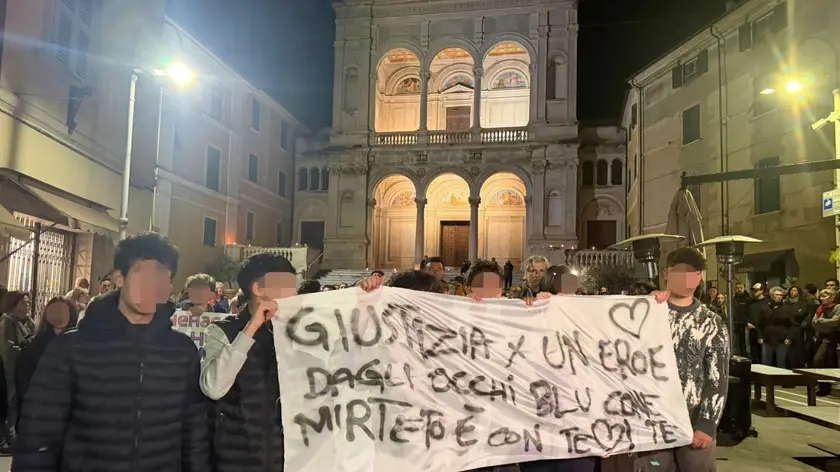 GIUSTIZIA X UN EROE
DAGLI OCCHI BLU COME
MIRTETO È CON TE